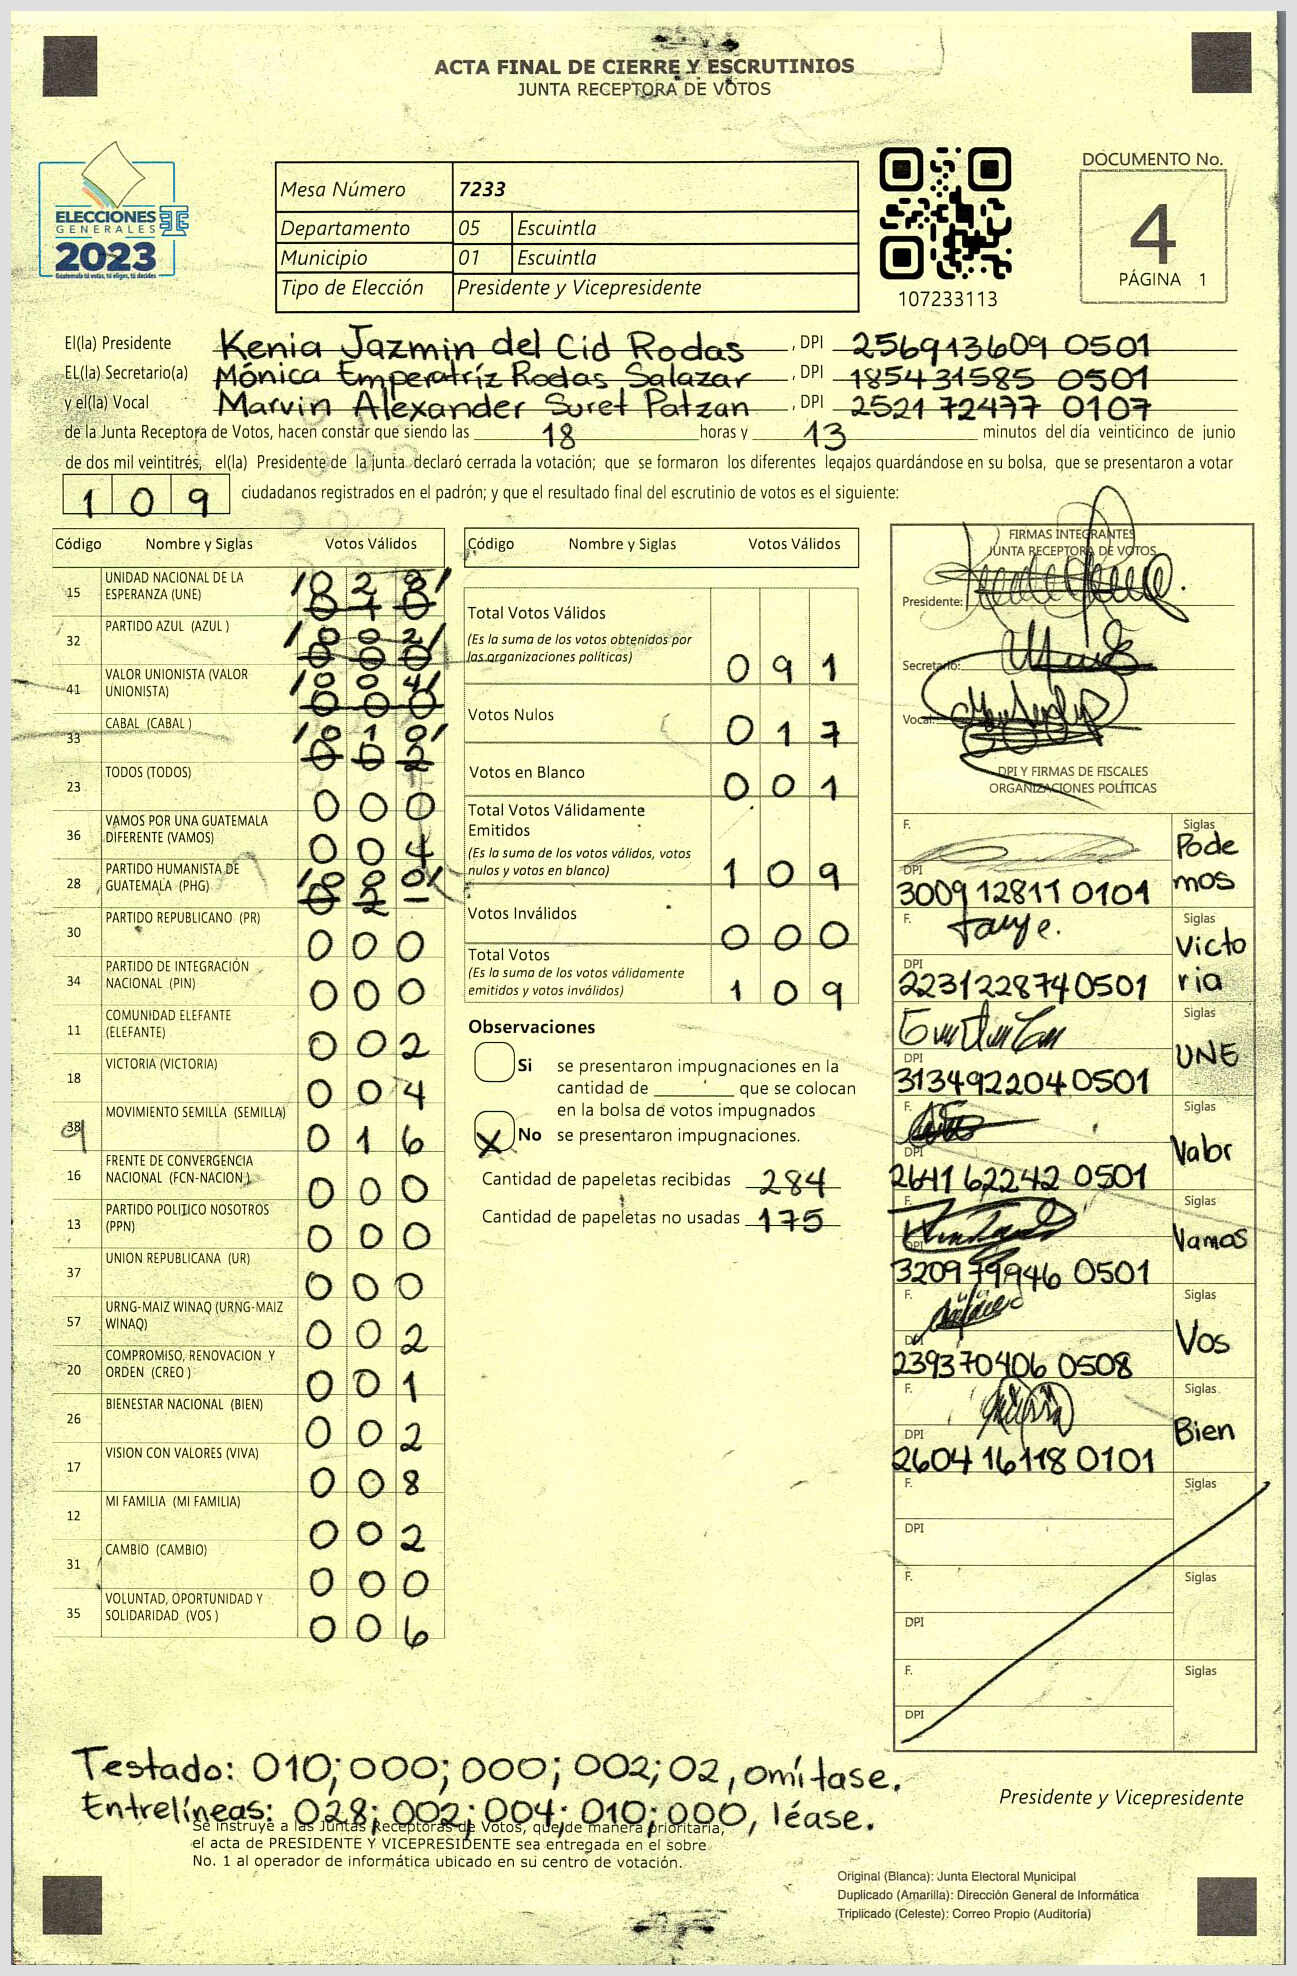 ACTA FINAL DE CIERRE Y ESCRUTINIOS
JUNTA RECEPTORA DE VOTOS
ELECCIONES
GENERALES
2023
Guatemala tú votas, tú eliges, tú decides
Mesa Número 7233
Departamento 05 Escuintla
Municipio 01 Escuintla
Tipo de Elección Presidente y Vicepresidente
107233113
DOCUMENTO No.
4
PÁGINA 1
El(la) Presidente Kenia Jazmin del Cid Rodas , DPI 256913609 0501
EL(la) Secretario(a) Mónica Emperatríz Rodas Salazar , DPI 185431585 0501
y el(la) Vocal Marvin Alexander Suret Patzan , DPI 252172477 0107
de la Junta Receptora de Votos, hacen constar que siendo las 18 horas y 13 minutos del día veinticinco de junio
de dos mil veintitrés, el(la) Presidente de la junta declaró cerrada la votación; que se formaron los diferentes legajos guardándose en su bolsa, que se presentaron a votar
109 ciudadanos registrados en el padrón; y que el resultado final del escrutinio de votos es el siguiente:
Código Nombre y Siglas Votos Válidos
15 UNIDAD NACIONAL DE LA ESPERANZA (UNE) /028/ 010
32 PARTIDO AZUL (AZUL ) /002/ 000
41 VALOR UNIONISTA (VALOR UNIONISTA) /004/ 000
33 CABAL (CABAL ) /010/ 002
23 TODOS (TODOS) 000
36 VAMOS POR UNA GUATEMALA DIFERENTE (VAMOS) 004
28 PARTIDO HUMANISTA DE GUATEMALA (PHG) /000/ 02-
30 PARTIDO REPUBLICANO (PR) 000
34 PARTIDO DE INTEGRACIÓN NACIONAL (PIN) 000
11 COMUNIDAD ELEFANTE (ELEFANTE) 002
18 VICTORIA (VICTORIA) 004
38 MOVIMIENTO SEMILLA (SEMILLA) 016
16 FRENTE DE CONVERGENCIA NACIONAL (FCN-NACION ) 000
13 PARTIDO POLITICO NOSOTROS (PPN) 000
37 UNION REPUBLICANA (UR) 000
57 URNG-MAIZ WINAQ (URNG-MAIZ WINAQ) 002
20 COMPROMISO, RENOVACION Y ORDEN (CREO ) 001
26 BIENESTAR NACIONAL (BIEN) 002
17 VISION CON VALORES (VIVA) 008
12 MI FAMILIA (MI FAMILIA) 002
31 CAMBIO (CAMBIO) 000
35 VOLUNTAD, OPORTUNIDAD Y SOLIDARIDAD (VOS ) 006
Código Nombre y Siglas Votos Válidos
Total Votos Válidos
(Es la suma de los votos obtenidos por
las organizaciones políticas) 091
Votos Nulos 017
Votos en Blanco 001
Total Votos Válidamente
Emitidos
(Es la suma de los votos válidos, votos
nulos y votos en blanco) 109
Votos Inválidos 000
Total Votos
(Es la suma de los votos válidamente
emitidos y votos inválidos) 109
Observaciones
Si se presentaron impugnaciones en la
cantidad de ________ que se colocan
en la bolsa de votos impugnados
X No se presentaron impugnaciones.
Cantidad de papeletas recibidas 284
Cantidad de papeletas no usadas 175
FIRMAS INTEGRANTES
JUNTA RECEPTORA DE VOTOS
Presidente:
Secretario:
Vocal:
DPI Y FIRMAS DE FISCALES
ORGANIZACIONES POLÍTICAS
F. Siglas Podemos
DPI 3009128110101
F. Siglas Victoria
DPI 2231228740501
F. Siglas UNE
DPI 3134922040501
F. Siglas Valor
DPI 264162242 0501
F. Siglas Vamos
DPI 320979946 0501
F. Siglas Vos
DPI 239370406 0508
F. Siglas Bien
DPI 2604 16118 0101
F. Siglas
DPI
F. Siglas
DPI
F. Siglas
DPI
Testado: 010; 000; 000; 002; 02, omítase.
Entrelíneas: 028; 002; 004; 010; 000, léase.
Presidente y Vicepresidente
Se instruye a las Juntas Receptoras de Votos, que de manera prioritaria,
el acta de PRESIDENTE Y VICEPRESIDENTE sea entregada en el sobre
No. 1 al operador de informática ubicado en su centro de votación.
Original (Blanca): Junta Electoral Municipal
Duplicado (Amarilla): Dirección General de Informática
Triplicado (Celeste): Correo Propio (Auditoría)